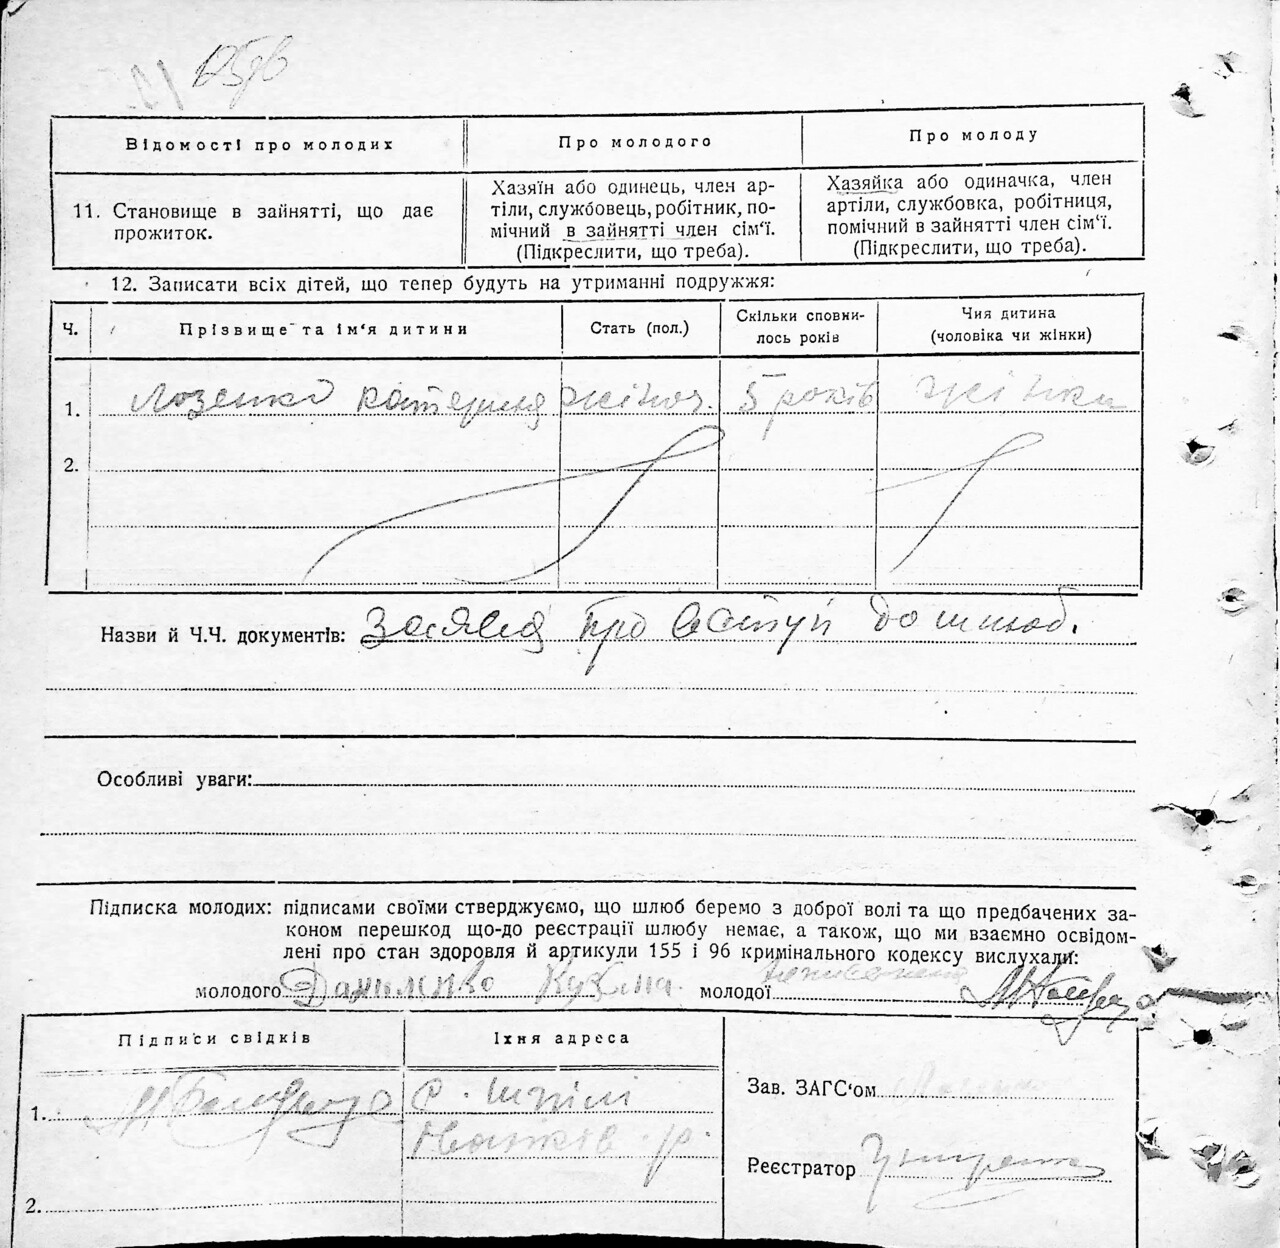 125зв
Відомості про молодих
Про молодого
Про молоду
11. Становище в зайнятті, що дає
прожиток.
Хазяїн або одинець, член ар-
тіли, службовець, робітник, по-
мічний в зайнятті член сім‘ї.
(Підкреслити, що треба).
Хазяйка або одиначка, член
артіли, службовка, робітниця,
помічний в зайнятті член сім‘ї.
(Підкреслити, що треба).
12. Записати всіх дітей, що тепер будуть на утриманні подружжя:
Ч.
Прізвище та ім‘я дитини
Стать (пол.)
Скільки сповни-
лось років
Чия дитина
(чоловіка чи жінки)
1. Лозенко Катерина жіноч. 5 років жінки
2.
Назви й Ч.Ч. документів: Заява про вступ до шлюб.
Особливі уваги:
Підписка молодих: підписами своїми стверджуємо, що шлюб беремо з доброї волі та що предбачених за-
коном перешкод що-до реєстрації шлюбу немає, а також, що ми взаємно освідом-
лені про стан здоровля й артикули 155 і 96 кримінального кодексу вислухали:
молодого Даниленко молодої
Підписи свідків
Їхня адреса
1. с. Шпілі
Іванків. р.
2.
Зав. ЗАГС‘ом
Реєстратор